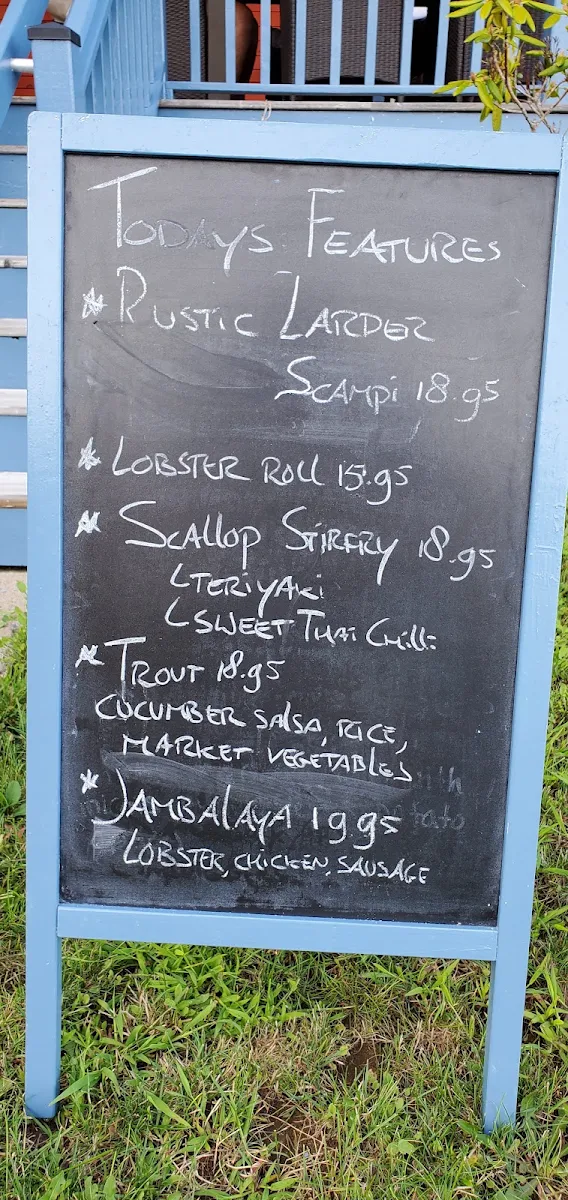 TODAYS FEATURES
* RUSTIC LARDER
SCAMPi 18.95
* LOBSTER ROLL 15.95
* SCALLOP STIRFRY 18.95
TERiYAKi
SWEET THAi CHiLLi
* TROUT 18.95
CUCUMBER SALSA, RICE,
MARKET VEGETABLES
* JAMBALAYA 1995
LOBSTER, CHiCKEN, SAUSAGE